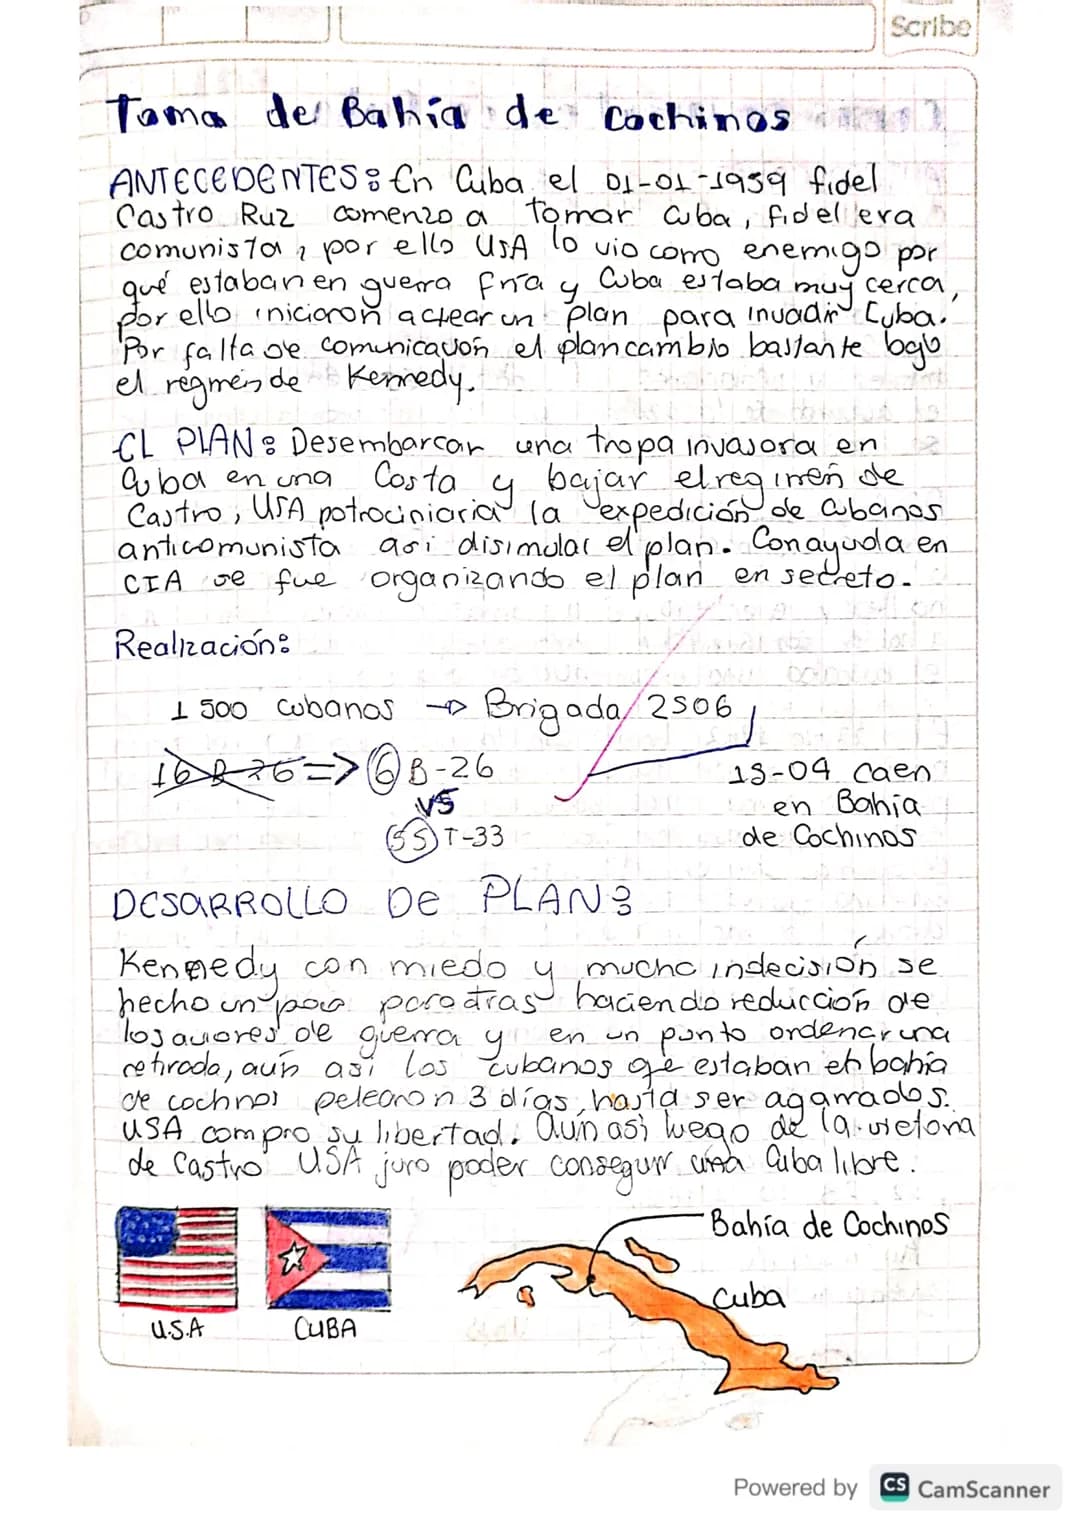 Scribe
Toma de Bahía de Cochinos
ANTECEDENTES: En Cuba el 01-01-1959 fidel
Castro Ruz comenzo a tomar Cuba, fidel era
comunista, por ello USA lo vio como enemigo por
qué estaban en guerra fría y Cuba estaba muy cerca,
por ello iniciaron a ctear un plan para invadir Cuba.
Por falta de comunicación el plan cambio bastante bajo
el regmén de Kennedy.
EL PLAN: Desembarcar una tropa invasora en
Cuba en una Costa y bajar el regimén de
Castro, USA potrociniaria la expedición de Cubanos
anticomunista asi disimular el plan. Con ayuda en
CIA se fue organizando el plan en secreto.
Realización:
1 500 cubanos → Brigada 2506
16 B-26 => 6 B-26
VS
55 T-33
15-04 caen
en Bahía
de Cochinos
DESARROLLO DE PLAN:
Kennedy con miedo y mucha indecisión se
hecho un paso para atras haciendo reducción de
los aviones de guerra y en un punto ordenar una
retirada, aún así los cubanos qe estaban en bahía
de cochnos pelearon 3 días, hasta ser agarrados.
USA compro su libertad. Aún así luego de la victoria
de Castro USA juro poder conseguir una Cuba libre.
Bahía de Cochinos
Cuba
U.S.A
CUBA
Powered by CS CamScanner